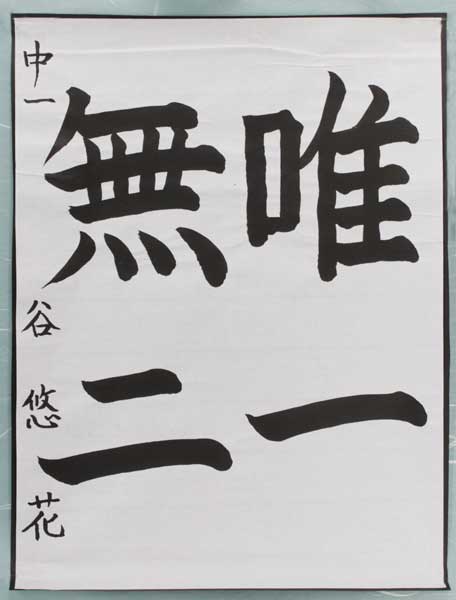 唯一
無二
中一 谷悠花